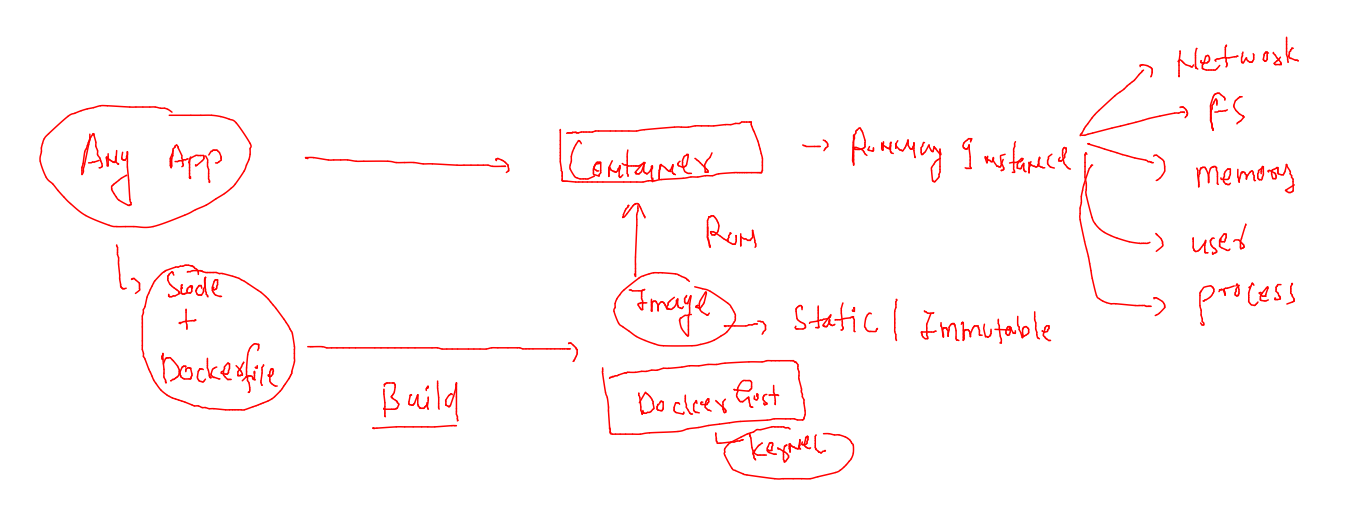 Any App
Container
Running Instance
Network
FS
memory
user
process
Run
Scode
+
Dockerfile
Image
Static / Immutable
Build
Docker Host
Kernel